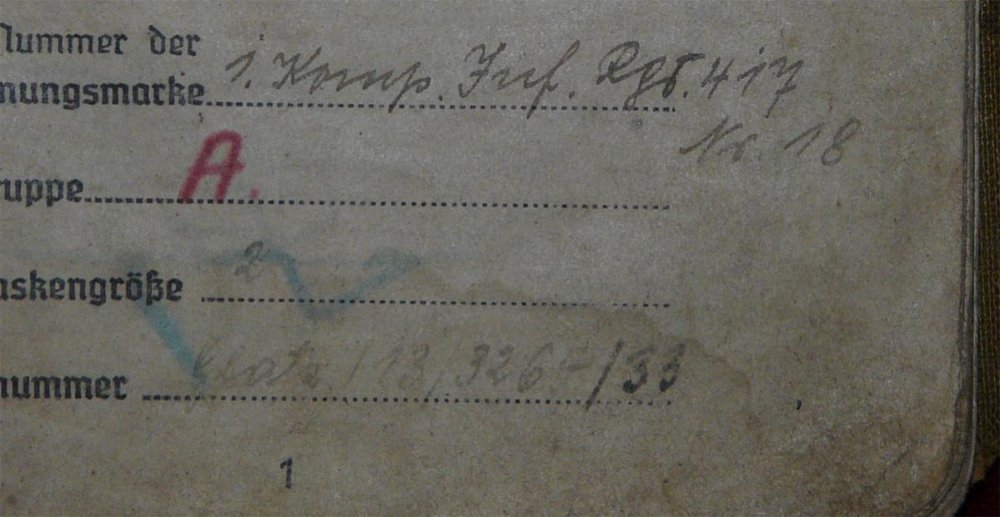 Nummer der
nungsmarke 1. Komp. Inf. Rgt. 417
Nr. 18
ruppe A.
askengröße 2
nummer Glatz / 13/326-/33
1